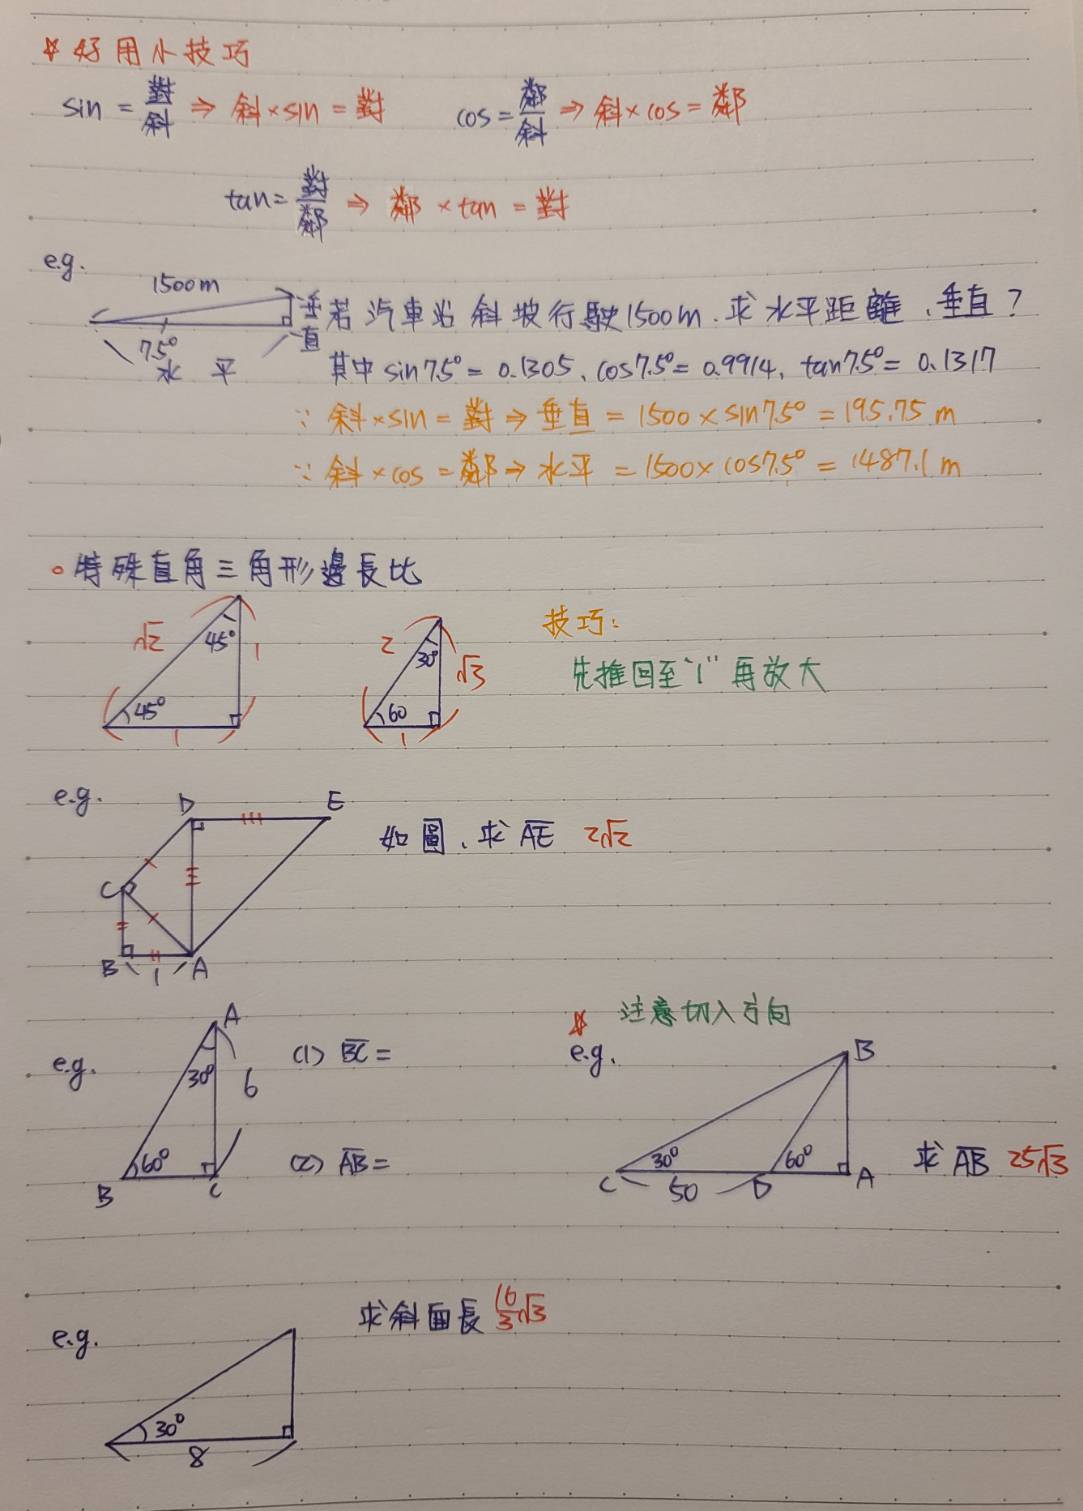 ☆ 好用小技巧
sin = 對/斜 ⇒ 斜×sin = 對 cos = 鄰/斜 ⇒ 斜×cos = 鄰
tan = 對/鄰 ⇒ 鄰×tan = 對
e.g.
1500m
垂直
7.5°
水平
若汽車沿斜坡行駛1500m. 求水平距離、垂直?
其中 sin7.5° = 0.1305、cos7.5° = 0.9914、tan7.5° = 0.1317
∵ 斜×sin = 對 ⇒ 垂直 = 1500×sin7.5° = 195.75 m
∵ 斜×cos = 鄰 ⇒ 水平 = 1500×cos7.5° = 1487.1 m
。特殊直角三角形邊長比
√2 45° 1
45°
1
2 30° √3
60
1
技巧:
先推回至"1"再放大
e.g.
D E
C
B 1 A
如圖、求 A̅E̅ 2√2
e.g.
A
30° 6
60°
B C
(1) B̅C̅ =
(2) A̅B̅ =
☆ 注意切入方向
e.g.
B
30° 60°
C 50 D A
求 A̅B̅ 25√3
e.g.
求斜面長 16/3 √3
30°
8